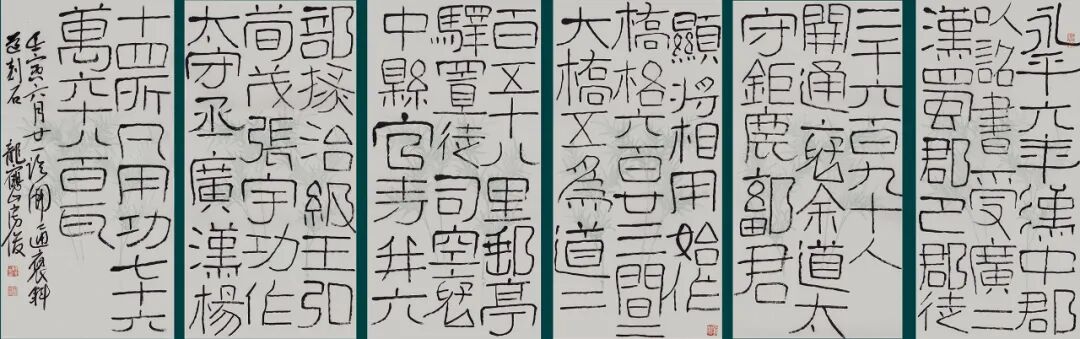 永平六年漢中郡
以詔書受廣二
漢蜀郡巴郡徒
二千六百九十人
開通褒余道太
守鉅鹿鄐君
顯將相用始作
橋格六百廿三間二
大橋五為道二
百五十八里郵亭
驛置徒司空褒
中縣官寺并六
部掾治級王弘
荀茂張宇功作
太守丞廣漢楊
十四所凡用功七十六
萬六千八百瓦
壬寅六月廿一臨開通褒斜
道刻石 龍應山房俊